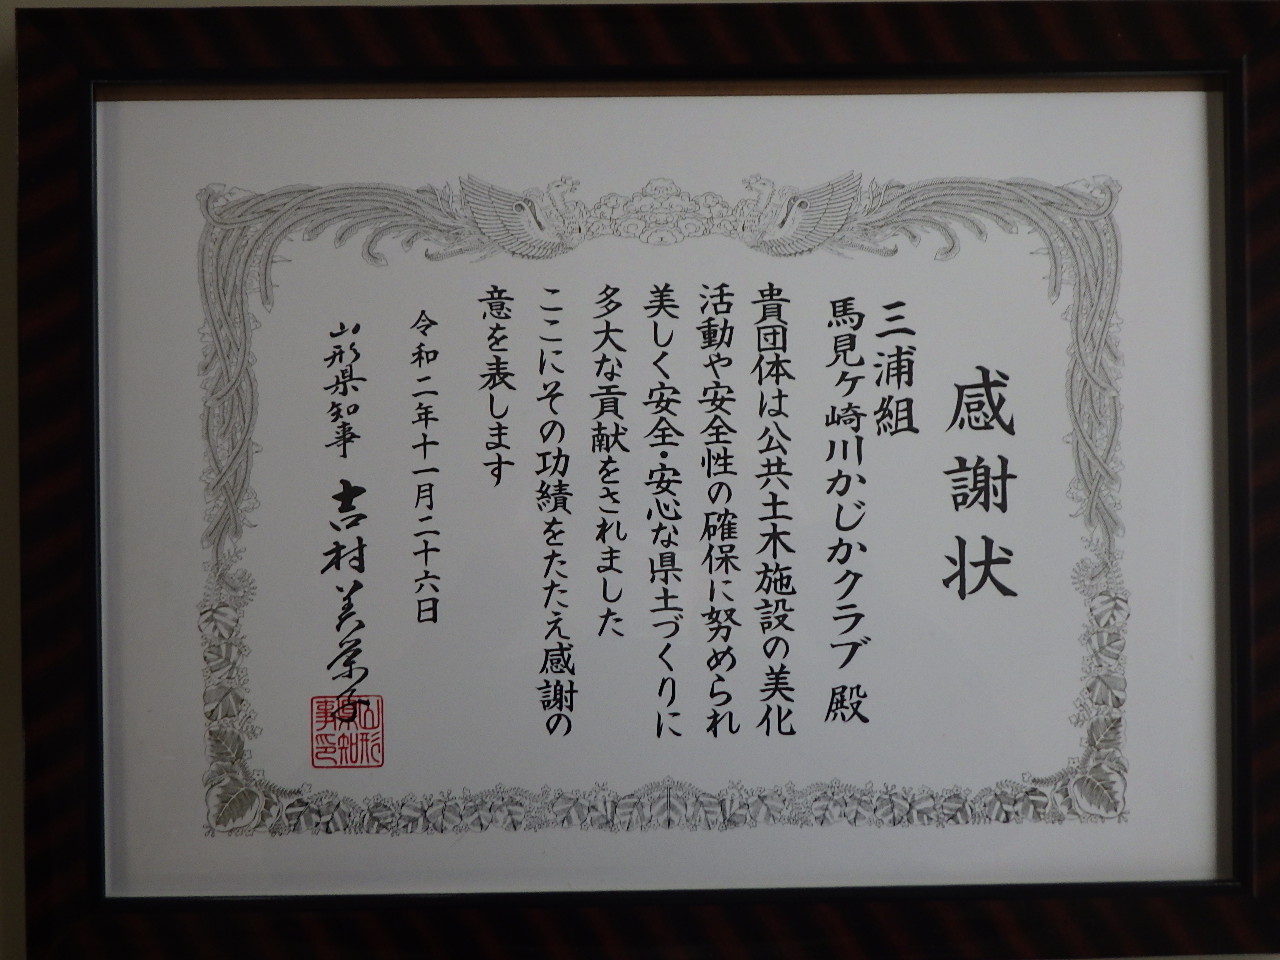 感謝状
三浦組
馬見ヶ崎川かじかクラブ 殿
貴団体は公共土木施設の美化
活動や安全性の確保に努められ
美しく安全・安心な県土づくりに
多大な貢献をされました
ここにその功績をたたえ感謝の
意を表します
令和二年十一月二十六日
山形県知事 吉村美栄子
山形
県知
事印